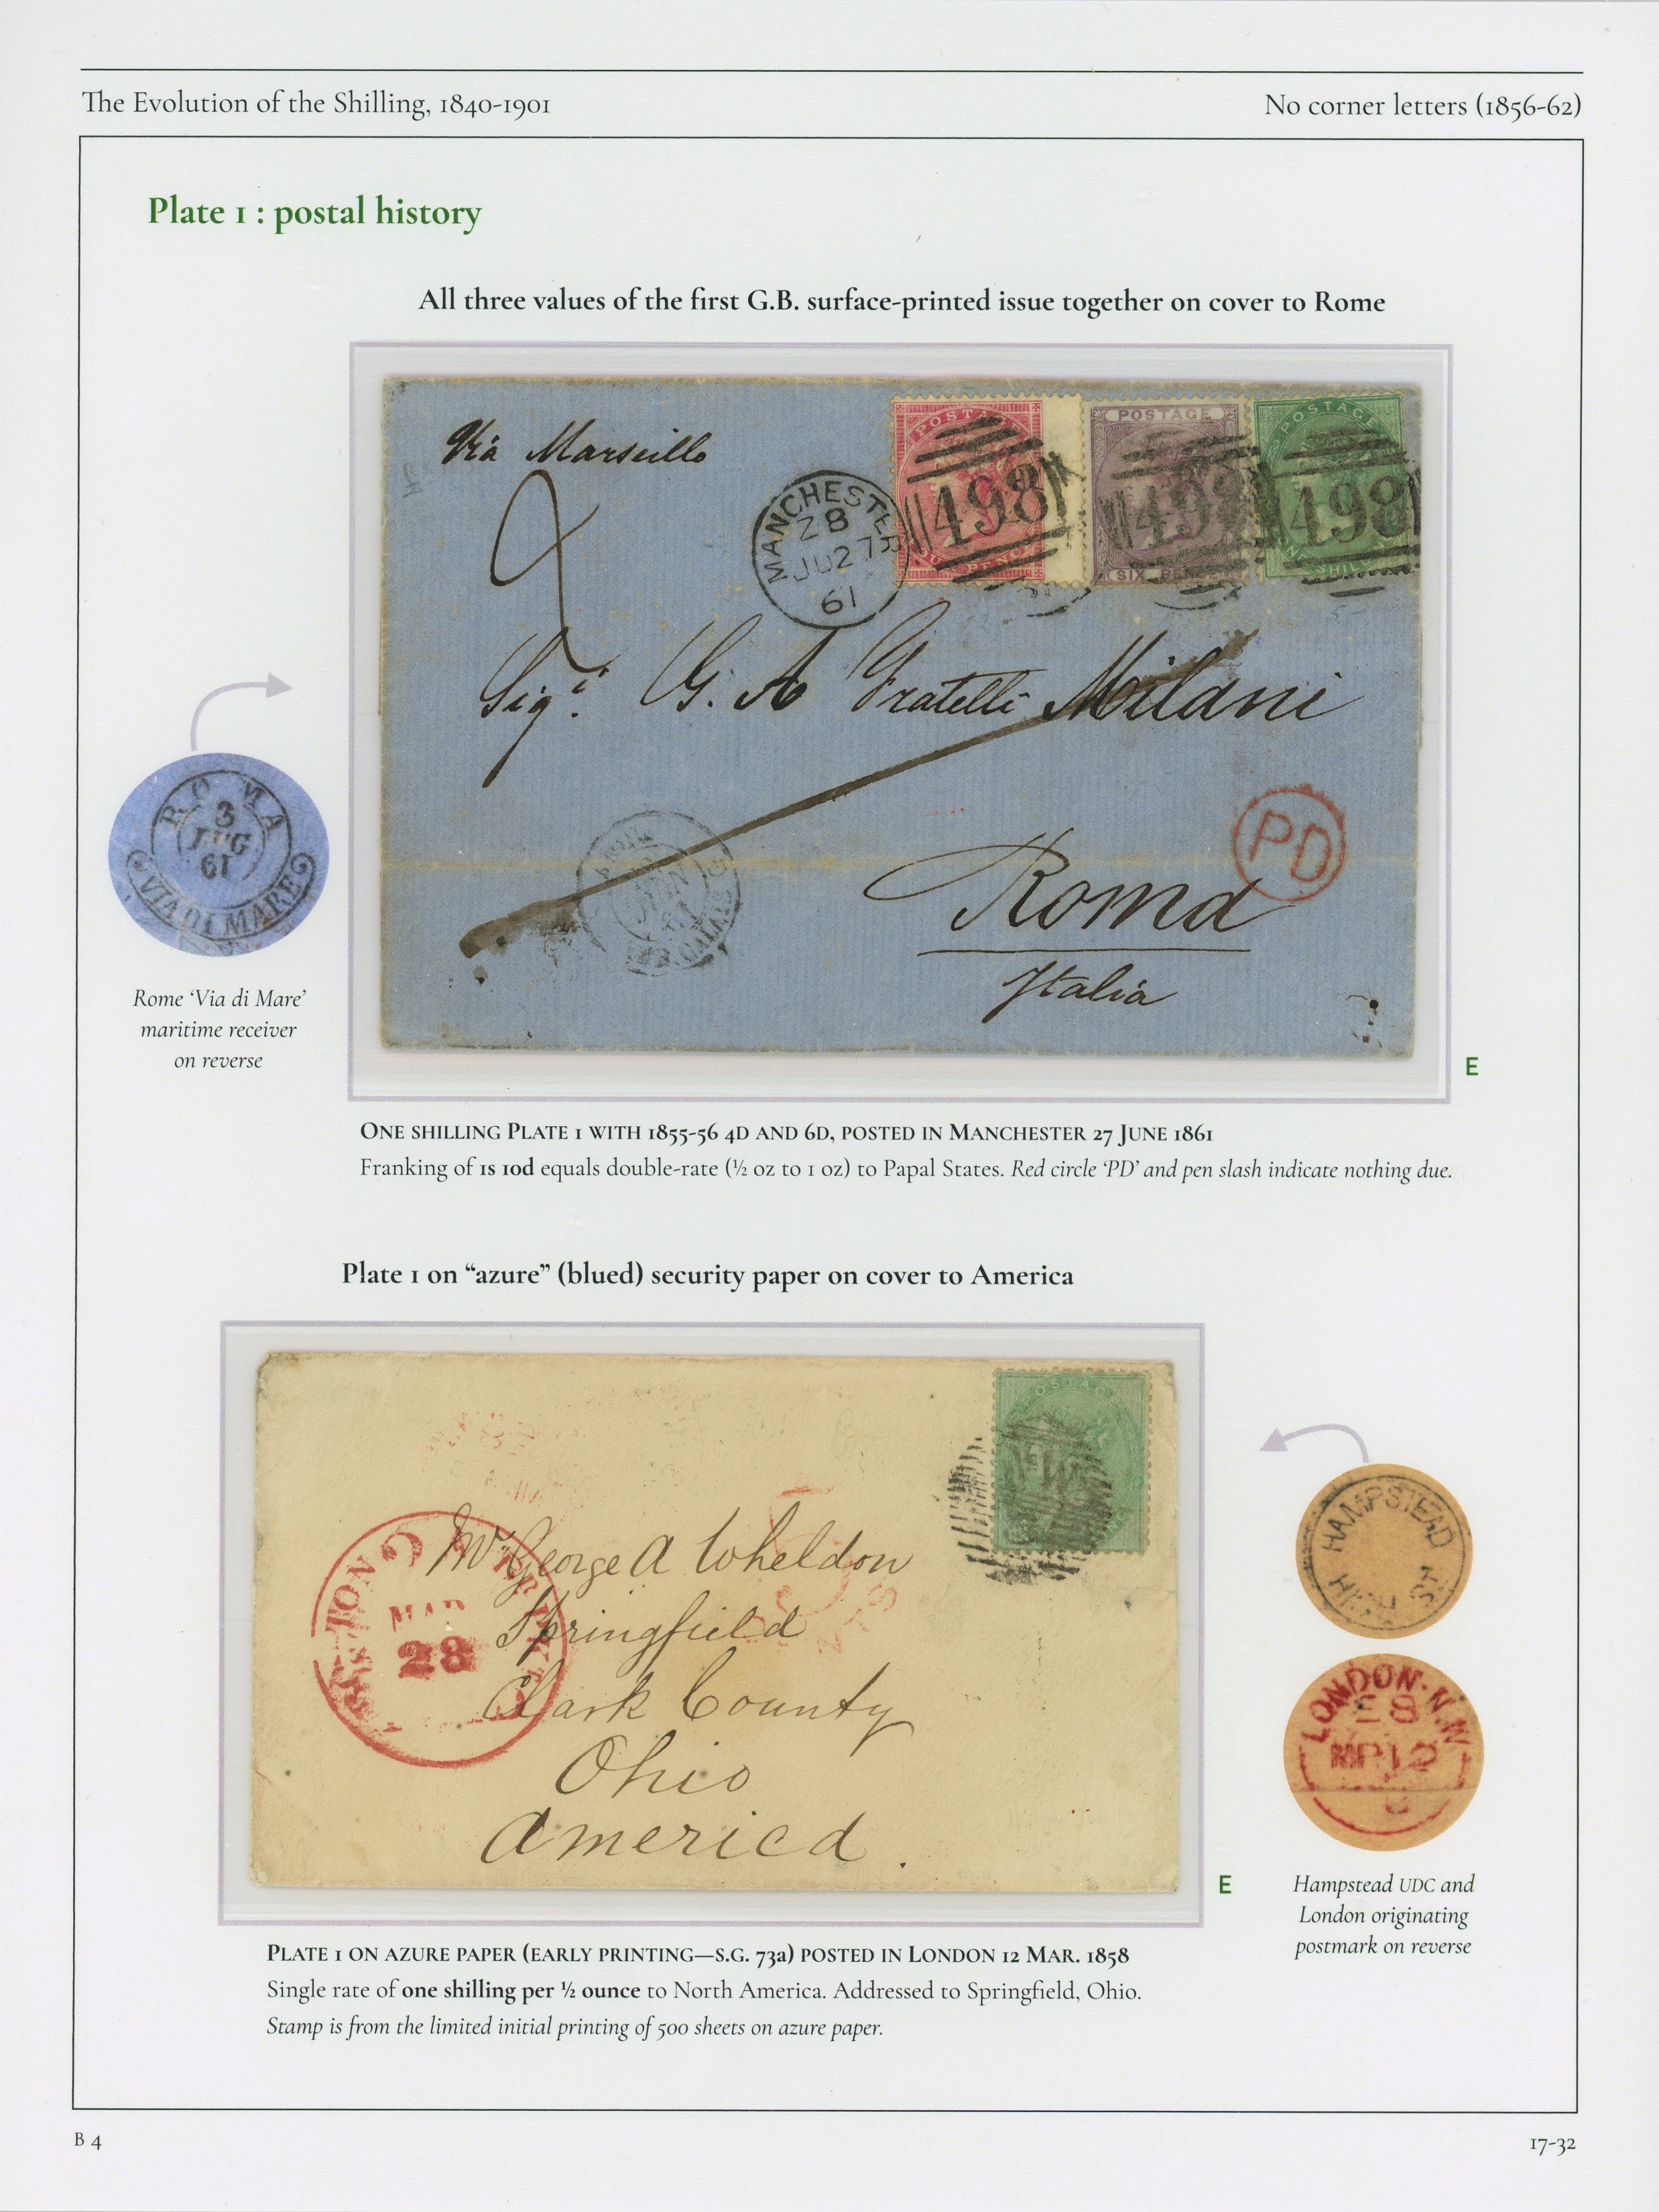 The Evolution of the Shilling, 1840-1901
No corner letters (1856-62)
Plate 1 : postal history
All three values of the first G.B. surface-printed issue together on cover to Rome
Via Marseille
POSTAGE
POSTAGE
498
498
498
SIX PENCE
MANCHESTER
Z 8
JU 27
61
Sigri G. A Fratelli Milani
PD
Roma
Italia
ROMA
3
LUG
61
VIA DI MARE
Rome ‘Via di Mare’
maritime receiver
on reverse
E
ONE SHILLING PLATE 1 WITH 1855-56 4D AND 6D, POSTED IN MANCHESTER 27 JUNE 1861
Franking of 1s 10d equals double-rate (½ oz to 1 oz) to Papal States. Red circle ‘PD’ and pen slash indicate nothing due.
Plate 1 on “azure” (blued) security paper on cover to America
POSTAGE
Mr George A Wheldon
Springfield
Clark County
Ohio
America.
MAR
28
HAMPSTEAD
HIGH ST
LONDON·N.W
E 8
MR 12
Hampstead UDC and
London originating
postmark on reverse
E
PLATE 1 ON AZURE PAPER (EARLY PRINTING—S.G. 73a) POSTED IN LONDON 12 MAR. 1858
Single rate of one shilling per ½ ounce to North America. Addressed to Springfield, Ohio.
Stamp is from the limited initial printing of 500 sheets on azure paper.
B 4
17-32